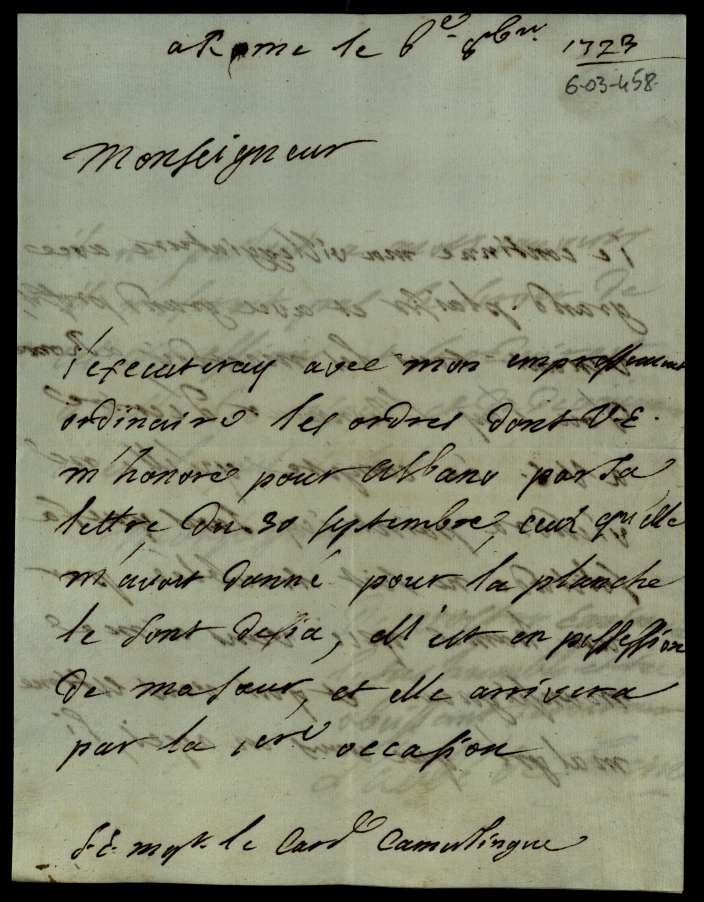 a Rome le 6e 8bre 1723
6-03-458
Monseigneur
j'executeray avec mon empressement
ordinaire les ordres dont V.E.
m'honore pour Albano par sa
lettre du 30 septembre, ceux qu'elle
m'avoit donné pour la planche
le sont desja, ell'est en possession
de ma soeur, et elle arrivera
par la 1ere occasion
S.E. mgr. le Card. Camerlingue